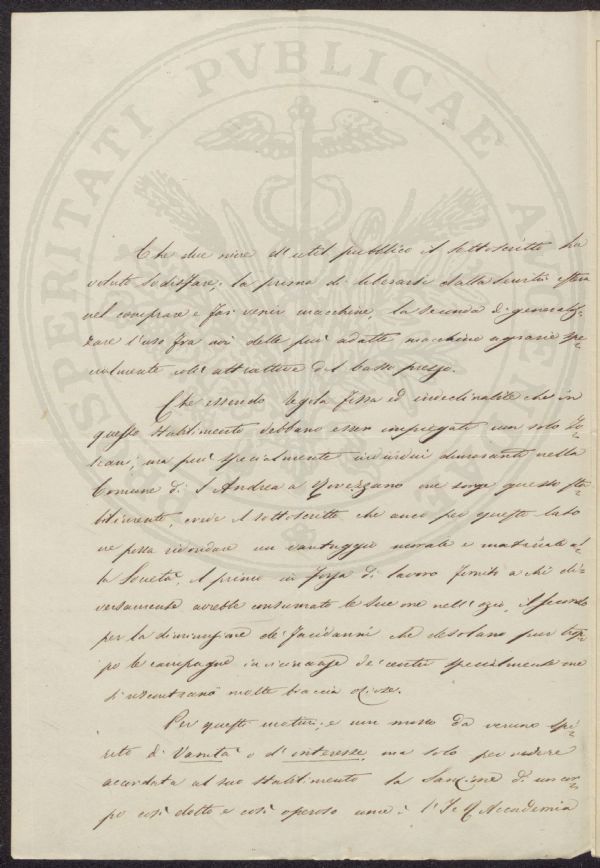 PROSPERITATI PVBLICAE AVGENDAE
Che due mire d'util pubblico il sottoscritto ha
voluto sodisfare; la prima di liberarsi dalla servitù estera
nel comprare e far venir macchine, la seconda di generaliz-
zare l'uso fra noi delle più adatte macchine agrarie spe-
cialmente coll' attrattiva del basso prezzo.
Che essendo regola fissa ed indeclinabile che in
questo stabilimento debbano esser impiegati non solo To-
scani, ma più specialmente individui dimoranti nella
Comune di S Andrea a Rovezzano ove sorge questo sta-
bilimento, crede il sottoscritto che anco per questo lato
ne possa ridondare un vantaggio morale e materiale al-
la Società, il primo in forza di lavoro fornito a chi di-
versamente avrebbe consumato le sue ore nell'ozio, il secondo
per la diminuzione de' facidanni che desolano pur trop-
po le campagne in vicinanze de' centri specialmente ove
s'incontrano molte braccia oziose.
Per questi motivi, e non mosso da veruno spi-
rito di vanità o d'interesse, ma solo per vedere
accordata al suo stabilimento la Sanzione di un cor-
po così dotto e così operoso come è l'I e R Accademia